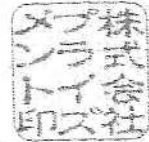 株式会社
プライズ
メント印